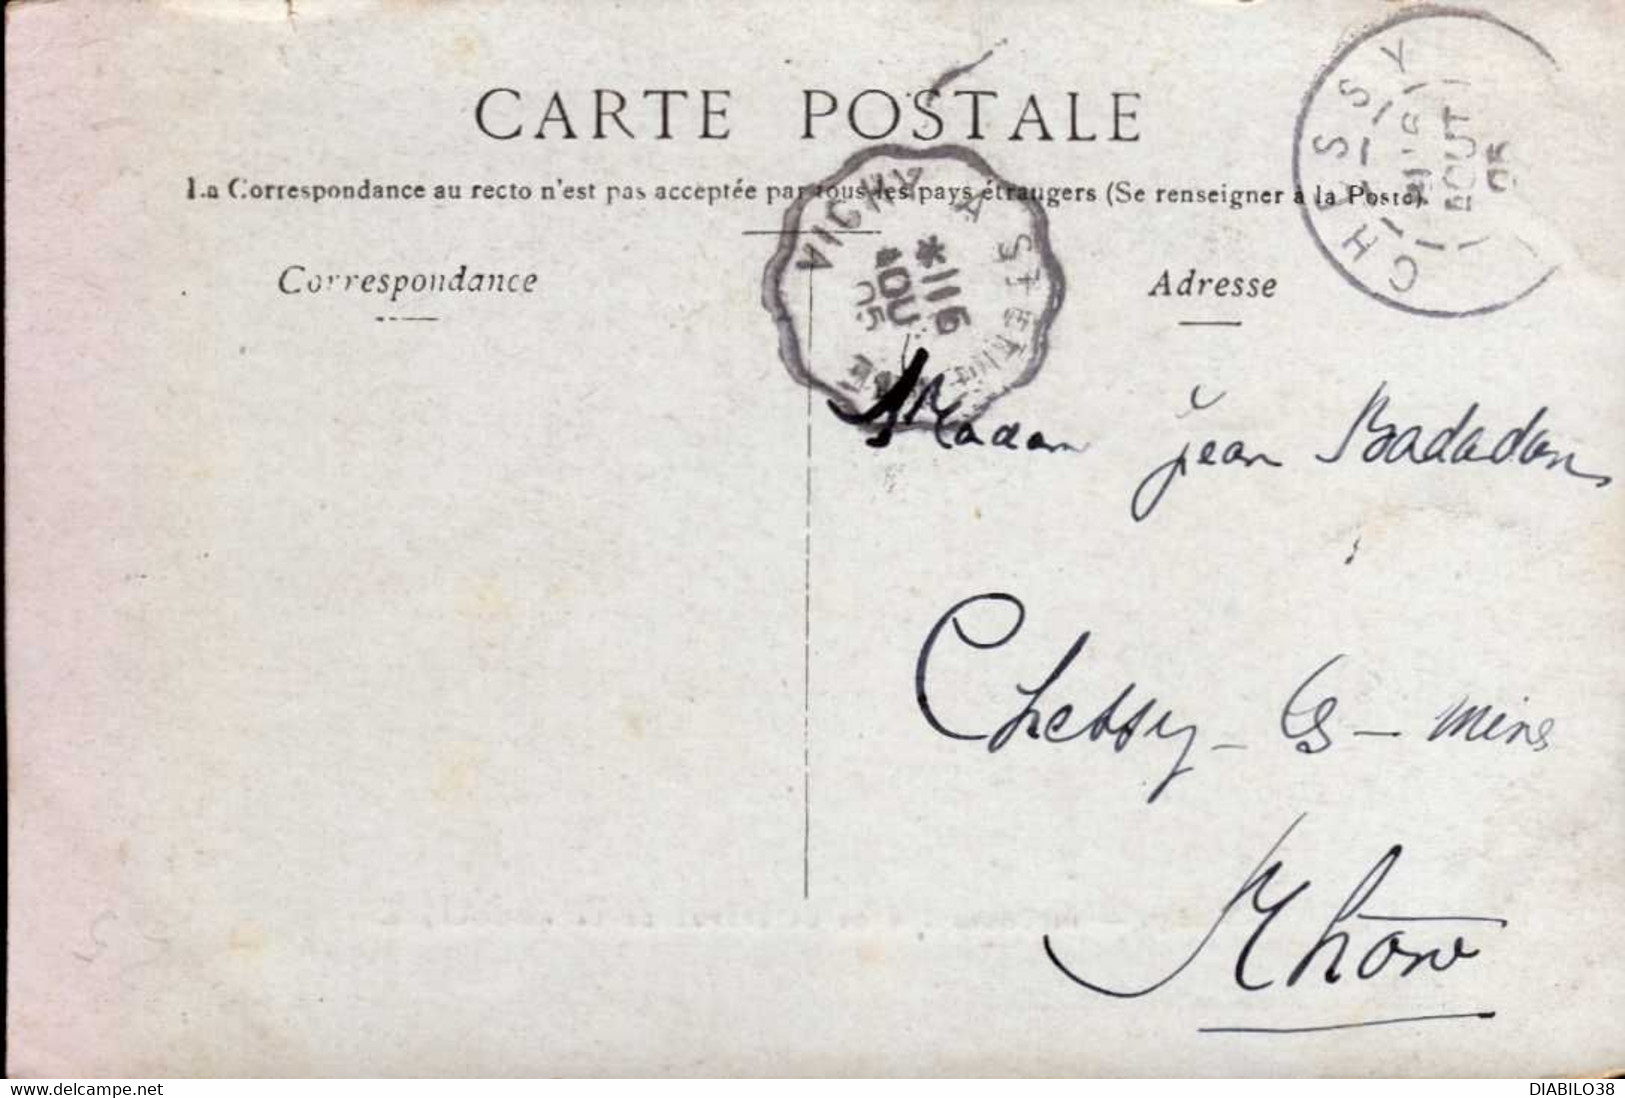 CARTE POSTALE
La Correspondance au recto n'est pas acceptée par tous les pays étrangers (Se renseigner à la Poste).
Correspondance
Adresse
VICHY A ST ETIENNE
*III 6
AOU
05
CHESSY
AOUT
05
Madam jean Badadan
Chessy-les-mines
Rhône
Delcampe.net
DIABILO38